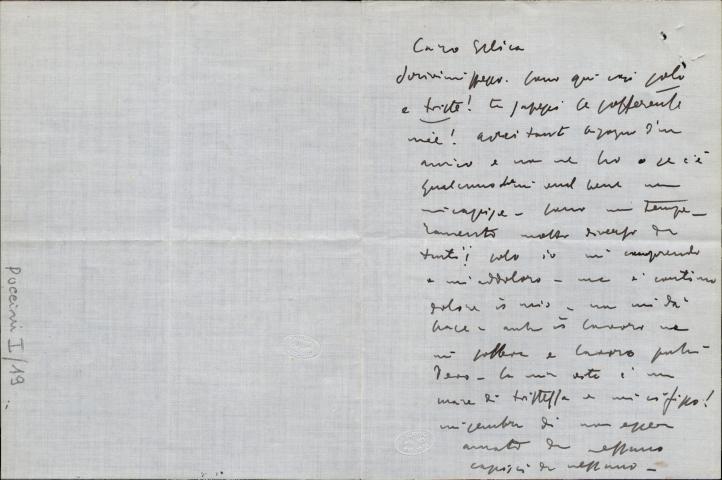 Caro Illica
Scrivimi spesso. Sono qui così solo
e triste! tu sapessi le sofferenze
mie! avrei tanto bisogno d'un
amico e non ne ho o se c'è
qualcuno vuol bene non
mi capisce - Sono un tempe-
ramento molto diverso da
tutti! solo io mi comprendo
e mi addoloro - ma è continuo
dolore il mio - non mi dà
pace - anche il lavoro ne
mi e lavoro
- la mia vita è un
mare di tristezza e mi ci fisso!
mi sembra di non esser
amato da nessuno
capisci da nessuno -
Puccini I/19